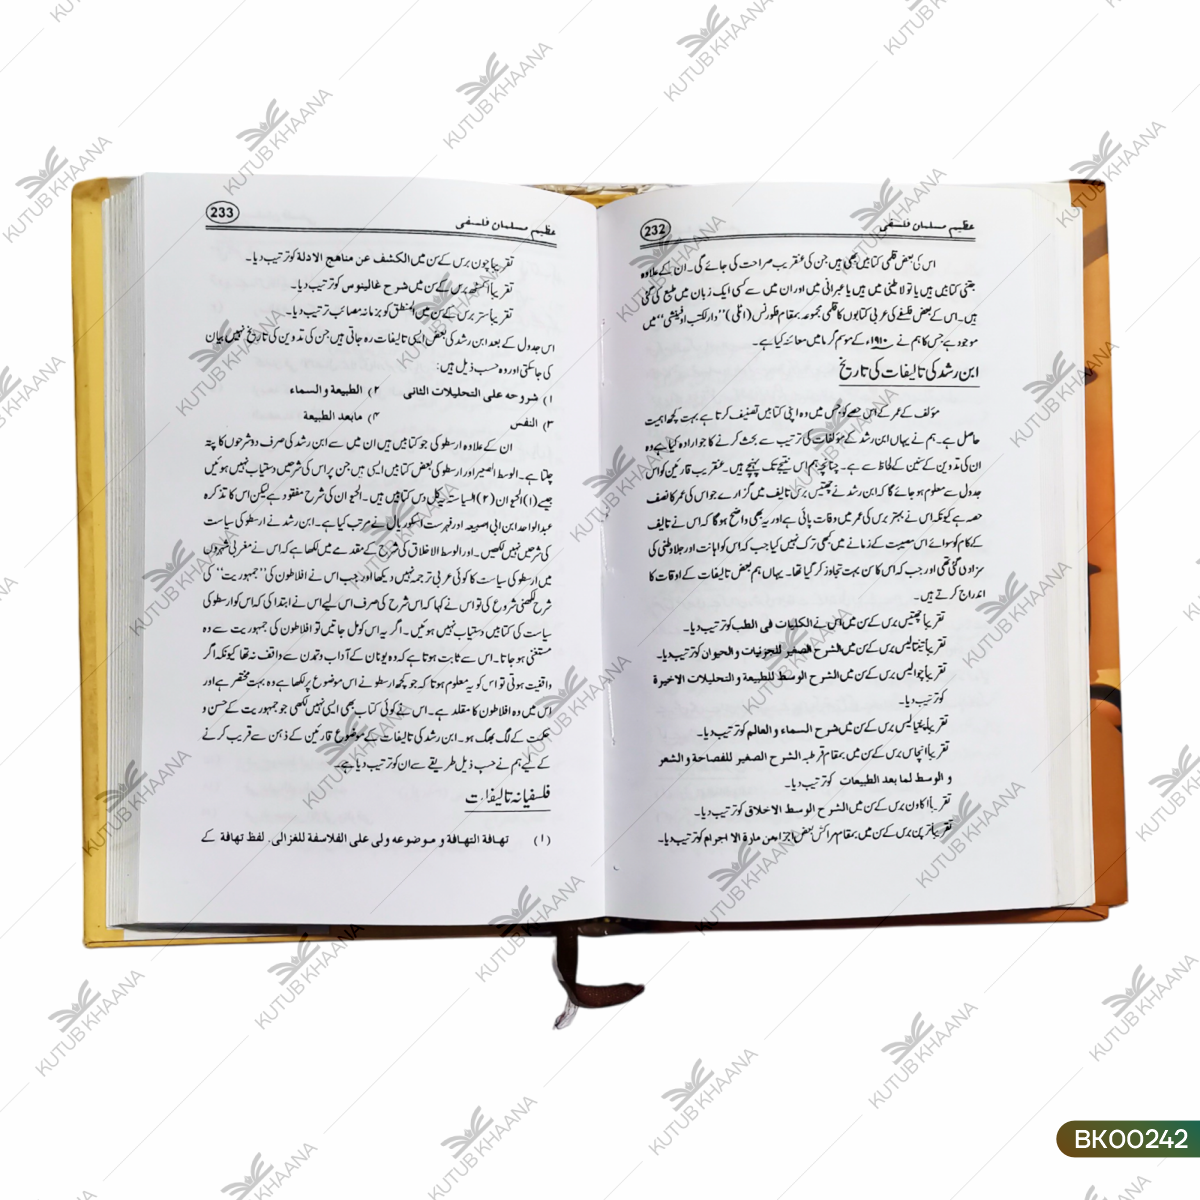 عظیم مسلمان فلسفی
232
اس کی بعض قلمی کتابیں بھی ہیں جن کی عنقریب صراحت کی جائے گی۔ ان کے علاوہ
جتنی کتابیں ہیں یا تو لاطینی میں ہیں یا عبرانی میں اور ان میں سے کسی ایک زبان میں طبع کی گئی
ہیں۔ اس کے بعض فلسفے کی عربی کتابوں کا قلمی مجموعہ بمقام فلورنس (اٹلی) ’’دارالکتب اوفیشی‘‘ میں
موجود ہے جس کا ہم نے ۱۹۱۰ء کے موسم گرما میں معائنہ کیا ہے۔
ابن رشد کی تالیفات کی تاریخ
مؤلف کے عمر کے اس حصے کو جس میں وہ اپنی کتابیں تصنیف کرتا ہے بہت کچھ اہمیت
حاصل ہے۔ ہم نے یہاں ابن رشد کے مؤلفات کی ترتیب سے بحث کرنے کا جو ارادہ کیا ہے وہ
ان کی تدوین کے سنین کے لحاظ سے ہے۔ چنانچہ ہم اس نتیجے تک پہنچے ہیں۔ عنقریب قارئین کو اس
جدول سے معلوم ہو جائے گا کہ ابن رشد نے چھتیس برس تالیف میں گزارے جو اس کی عمر کا نصف
حصہ ہے کیونکہ اس نے بہتر برس کی عمر میں وفات پائی ہے اور یہ بھی واضح ہو گا کہ اس نے تالیف
کے کام کو سوائے اس مصیبت کے زمانے میں کبھی ترک نہیں کیا جب کہ اس کو اہانت اور جلا وطنی کی
سزا دی گئی تھی اور جب کہ اس کا سن بہت تجاوز کر گیا تھا۔ یہاں ہم بعض تالیفات کے اوقات کا
اندراج کرتے ہیں۔
تقریباً چھتیس برس کے سن میں اس نے الکلیات فی الطب کو ترتیب دیا۔
تقریباً تینتالیس برس کے سن میں الشرح الصغیر للجزئیات والحیوان کو ترتیب دیا۔
تقریباً چوالیس برس کے سن میں الشرح الوسط للطبیعۃ والتحلیلات الاخیرۃ
کو ترتیب دیا۔
تقریباً پینتالیس برس کے سن میں شرح السماء والعالم کو ترتیب دیا۔
تقریباً انچاس برس کے سن میں بمقام قرطبہ الشرح الصغیر للفصاحۃ والشعر
و الوسط لما بعد الطبیعات کو ترتیب دیا۔
تقریباً اکاون برس کے سن میں الشرح الوسط الاخلاق کو ترتیب دیا۔
تقریباً ترپن برس کے سن میں بمقام مراکش بعض اجزا من مارۃ الاجرام کو ترتیب دیا۔
عظیم مسلمان فلسفی
233
تقریباً چون برس کے سن میں الکشف عن مناھج الادلۃ کو ترتیب دیا۔
تقریباً اکسٹھ برس کے سن میں شرح غالینوس کو ترتیب دیا۔
تقریباً ستر برس کے سن میں المنطق کو بزمانہ مصائب ترتیب دیا۔
اس جدول کے بعد ابن رشد کی بعض ایسی تالیفات رہ جاتی ہیں جن کی تدوین کی تاریخ نہیں بیان
کی جا سکتی اور وہ حسب ذیل ہیں:
۱) شروحہ علی التحلیلات الثانی ۲) الطبیعۃ والسماء
۳) النفس ۴) مابعد الطبیعۃ
ان کے علاوہ ارسطو کی جو کتابیں ہیں ان میں سے ابن رشد کی صرف دو شرحوں کا پتہ
چلتا ہے۔ الوسط الصغیر اور ارسطو کی بعض کتابیں ایسی ہیں جن پر اس کی شرحیں دستیاب نہیں ہوئیں
جیسے (۱) الحیوان (۲) السیاسۃ یہ کل دس کتابیں ہیں۔ الحیوان کی شرح مفقود ہے لیکن اس کا تذکرہ
عبدالواحد ابن ابی اصیبعہ اور فہرست اسکوریال نے مرتب کیا ہے۔ ابن رشد نے ارسطو کی سیاست
کی شرحیں نہیں لکھیں۔ اور الوسط الاخلاق کی شرح کے مقدمے میں لکھا ہے کہ اس نے مغربی شہروں
میں ارسطو کی سیاست کا کوئی عربی ترجمہ نہیں دیکھا اور جب اس نے افلاطون کی ’’جمہوریت‘‘ کی
شرح لکھنی شروع کی تو اس نے کہا کہ اس شرح کی صرف اس لیے اس نے ابتدا کی کہ اس کو ارسطو کی
سیاست کی کتابیں دستیاب نہیں ہوئیں۔ اگر یہ اس کو مل جاتیں تو افلاطون کی جمہوریت سے وہ
مستغنی ہو جاتا۔ اس سے ثابت ہوتا ہے کہ وہ یونان کے آداب و تمدن سے واقف نہ تھا کیونکہ اگر
واقفیت ہوتی تو اس کو یہ معلوم ہوتا کہ جو کچھ ارسطو نے اس موضوع پر لکھا ہے وہ بہت مختصر ہے اور
اس میں وہ افلاطون کا مقلد ہے۔ اس نے کوئی کتاب بھی ایسی نہیں لکھی جو جمہوریت کے حسن و
حکمت کے لگ بھگ ہو۔ ابن رشد کی تالیفات کے موضوع قارئین کے ذہن سے قریب کرنے
کے لیے ہم نے حسب ذیل طریقے سے ان کو ترتیب دیا ہے۔
فلسفیانہ تالیفات
(۱) تھافۃ التھافۃ و موضوعہ ولی علی الفلاسفۃ للغزالی۔ لفظ تھافۃ کے
KUTUB KHAANA
BK00242